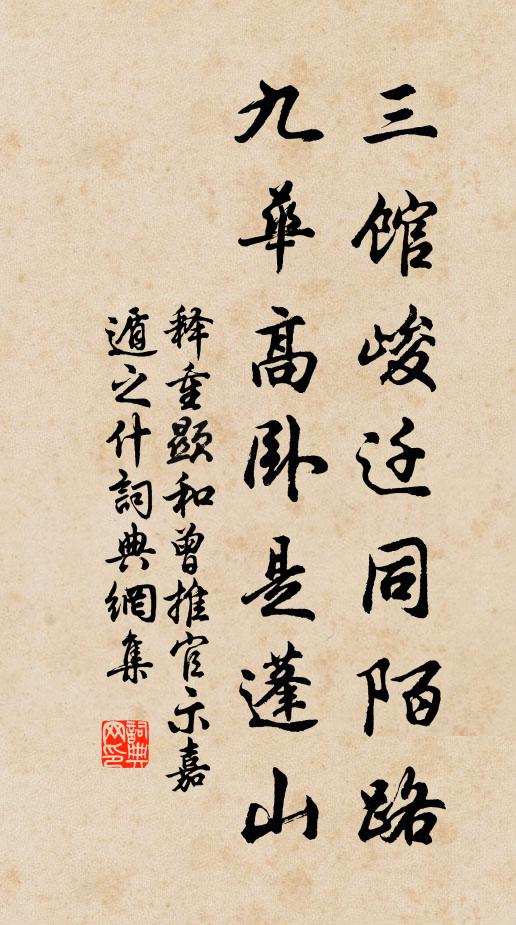 三館峻迁同陌路
九華高卧是蓬山
释重顯和曾推官示嘉
遁之什詞典網集
詞典网印